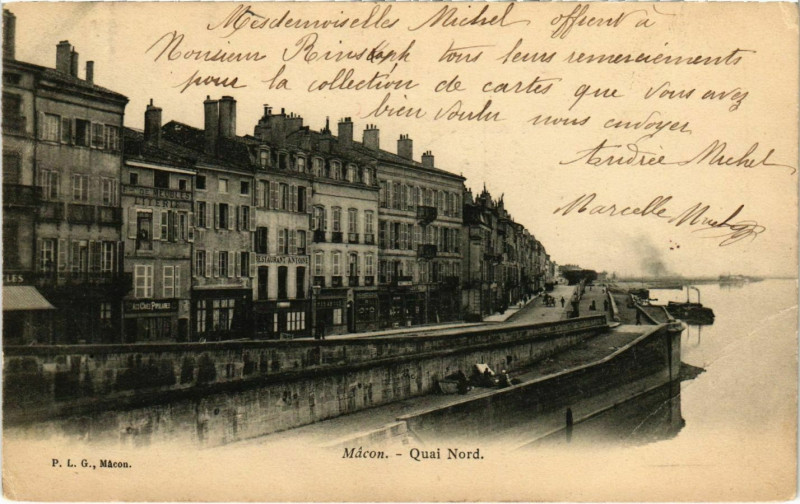 Mesdemoiselles Michel offrent à
Monsieur tous leurs remerciements
pour la collection de cartes que vous avez
bien voulu nous envoyer
Andrée Michel
Marcelle Michel
RESTAURANT ANTOINE
P. L. G., Mâcon.
Mâcon. - Quai Nord.